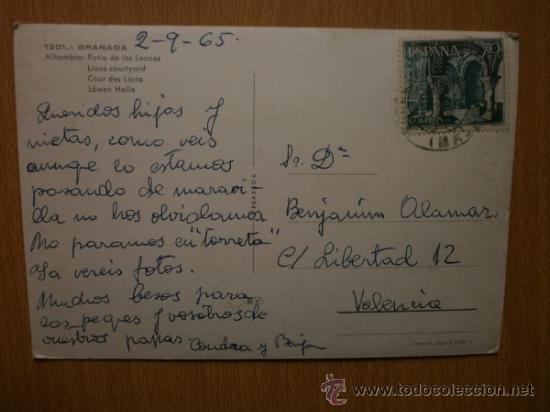 1201.- GRANADA
Alhambra: Patio de los Leones
Lions courtyard
Cour des Lions
Löwen Halle
2-9-65.
Queridos hijos y
nietas, como veis
aunque lo estamos
pasando de maravi
lla no hos olvidamos.
No paramos en "torreta"
Ya vereis fotos.
Muchos besos para
los peques y vosotros de
vuestros papas
y Benjon
ESPAÑA
70
CORREOS
Sr. Dn
Benjamin Alamar.
C/ Libertad 12
Valencia
www.todocoleccion.net